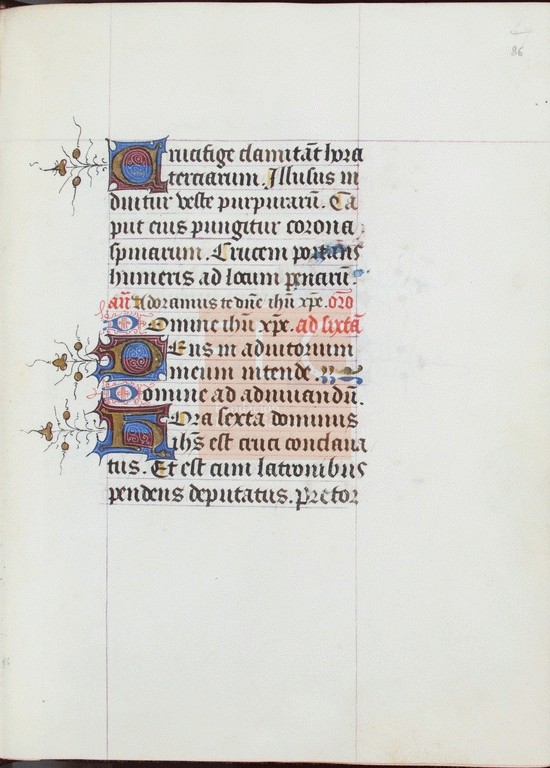 86
Crucifige clamitāt hora
terciarum. Illusus in
duitur veste purpurarū. Ca
put eius pungitur corona
spinarum. Crucem portans
humeris ad locum penarū.
añ Adoramus te dn̄e ihū xp̄e. oro
Domine ihū xp̄e. ad sixtā
Deus in adiutorium
meum intende.
Domine ad adiuuandū.
Hora sexta dominus
ihs̄ est cruci conclaua
tus. Et est cum latronibus
pendens deputatus. Pre tor